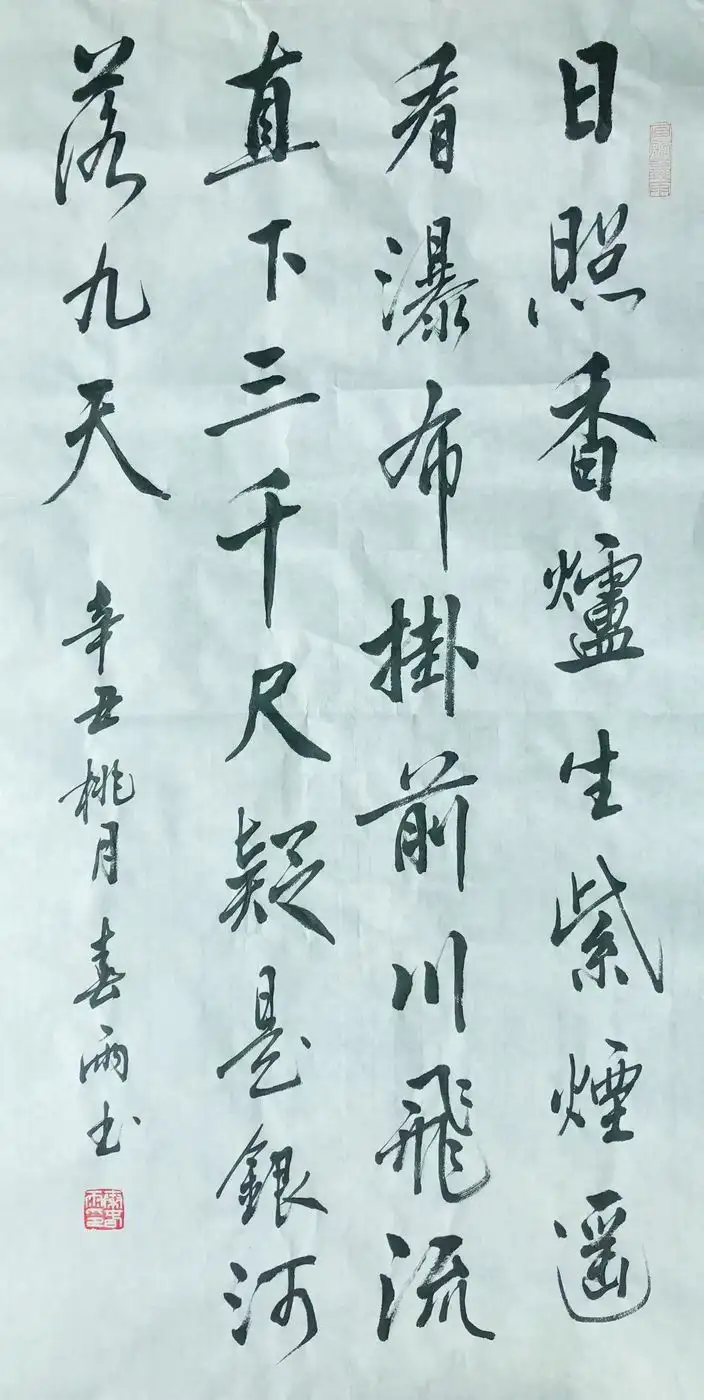 日照香爐生紫煙遥
看瀑布掛前川飛流
直下三千尺疑是銀河
落九天
辛丑桃月春雨书